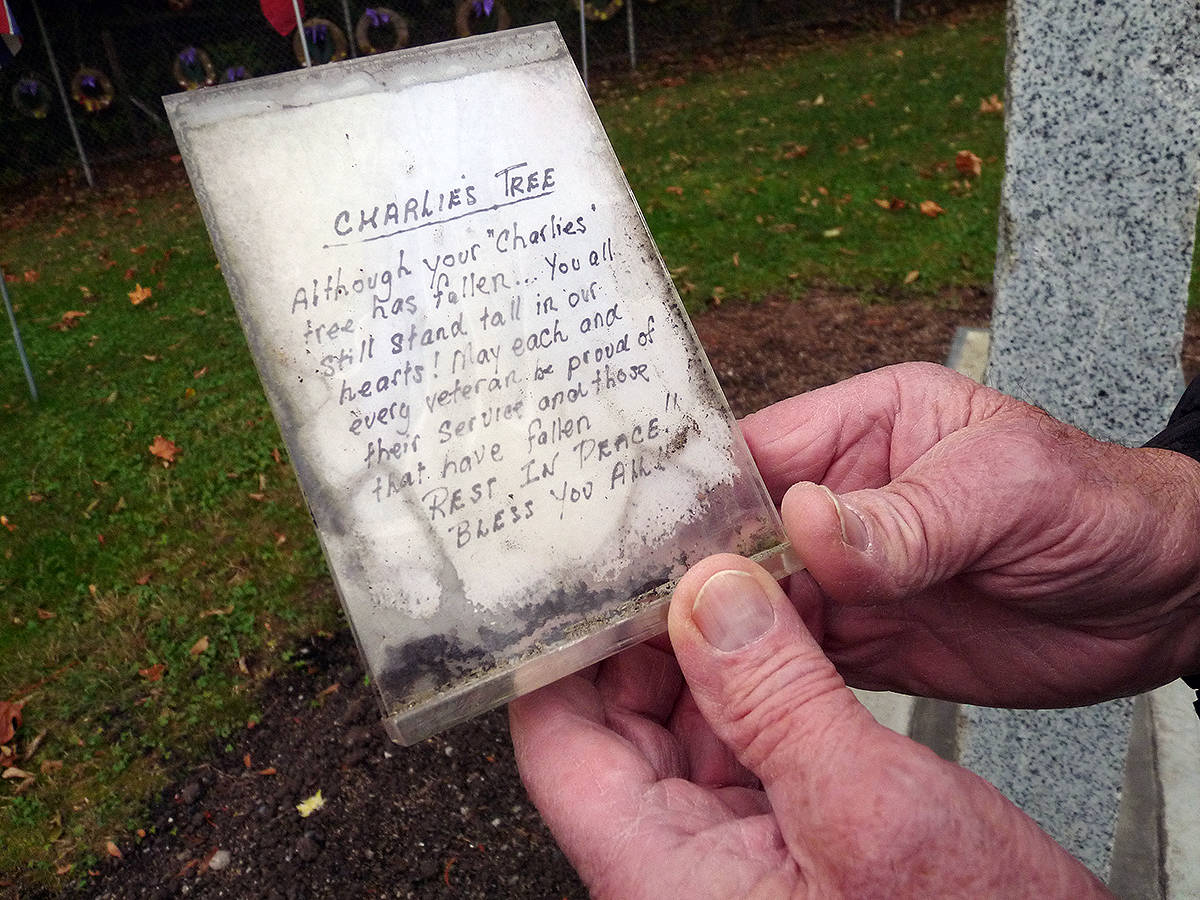 CHARLIE'S TREE
Although your "Charlies"
tree has fallen... You all
still stand tall in our
hearts! May each and
every veteran be proud of
their service and those
that have fallen
REST IN PEACE!!
BLESS YOU ALL!!